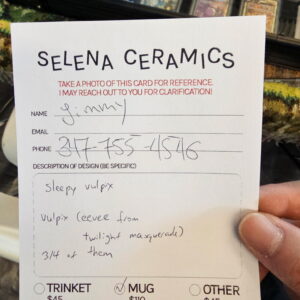 SELENA CERAMICS
TAKE A PHOTO OF THIS CARD FOR REFERENCE.
I MAY REACH OUT TO YOU FOR CLARIFICATION!
NAME Jimmy
EMAIL
PHONE 347-755-4546
DESCRIPTION OF DESIGN (BE SPECIFIC)
Sleepy vulpix
Vulpix (eevee from
twilight masquerade)
3/4 of them
TRINKET ✓ MUG OTHER
$45 $110 $45